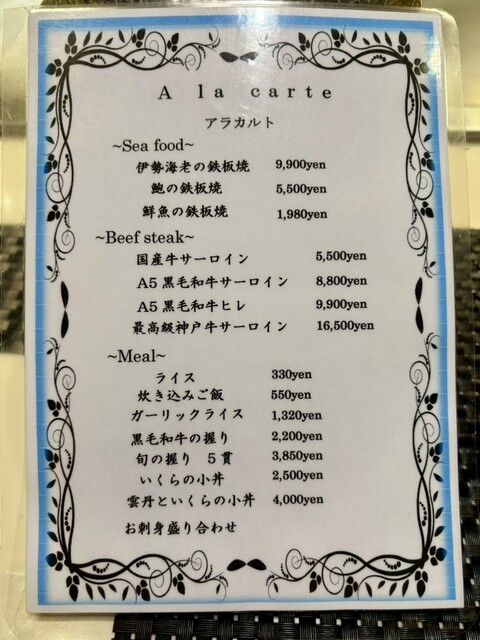 A la carte
アラカルト
~Sea food~
伊勢海老の鉄板焼 9,900yen
鮑の鉄板焼 5,500yen
鮮魚の鉄板焼 1,980yen
~Beef steak~
国産牛サーロイン 5,500yen
A5黒毛和牛サーロイン 8,800yen
A5黒毛和牛ヒレ 9,900yen
最高級神戸牛サーロイン 16,500yen
~Meal~
ライス 330yen
炊き込みご飯 550yen
ガーリックライス 1,320yen
黒毛和牛の握り 2,200yen
旬の握り 5貫 3,850yen
いくらの小丼 2,500yen
雲丹といくらの小丼 4,000yen
お刺身盛り合わせ